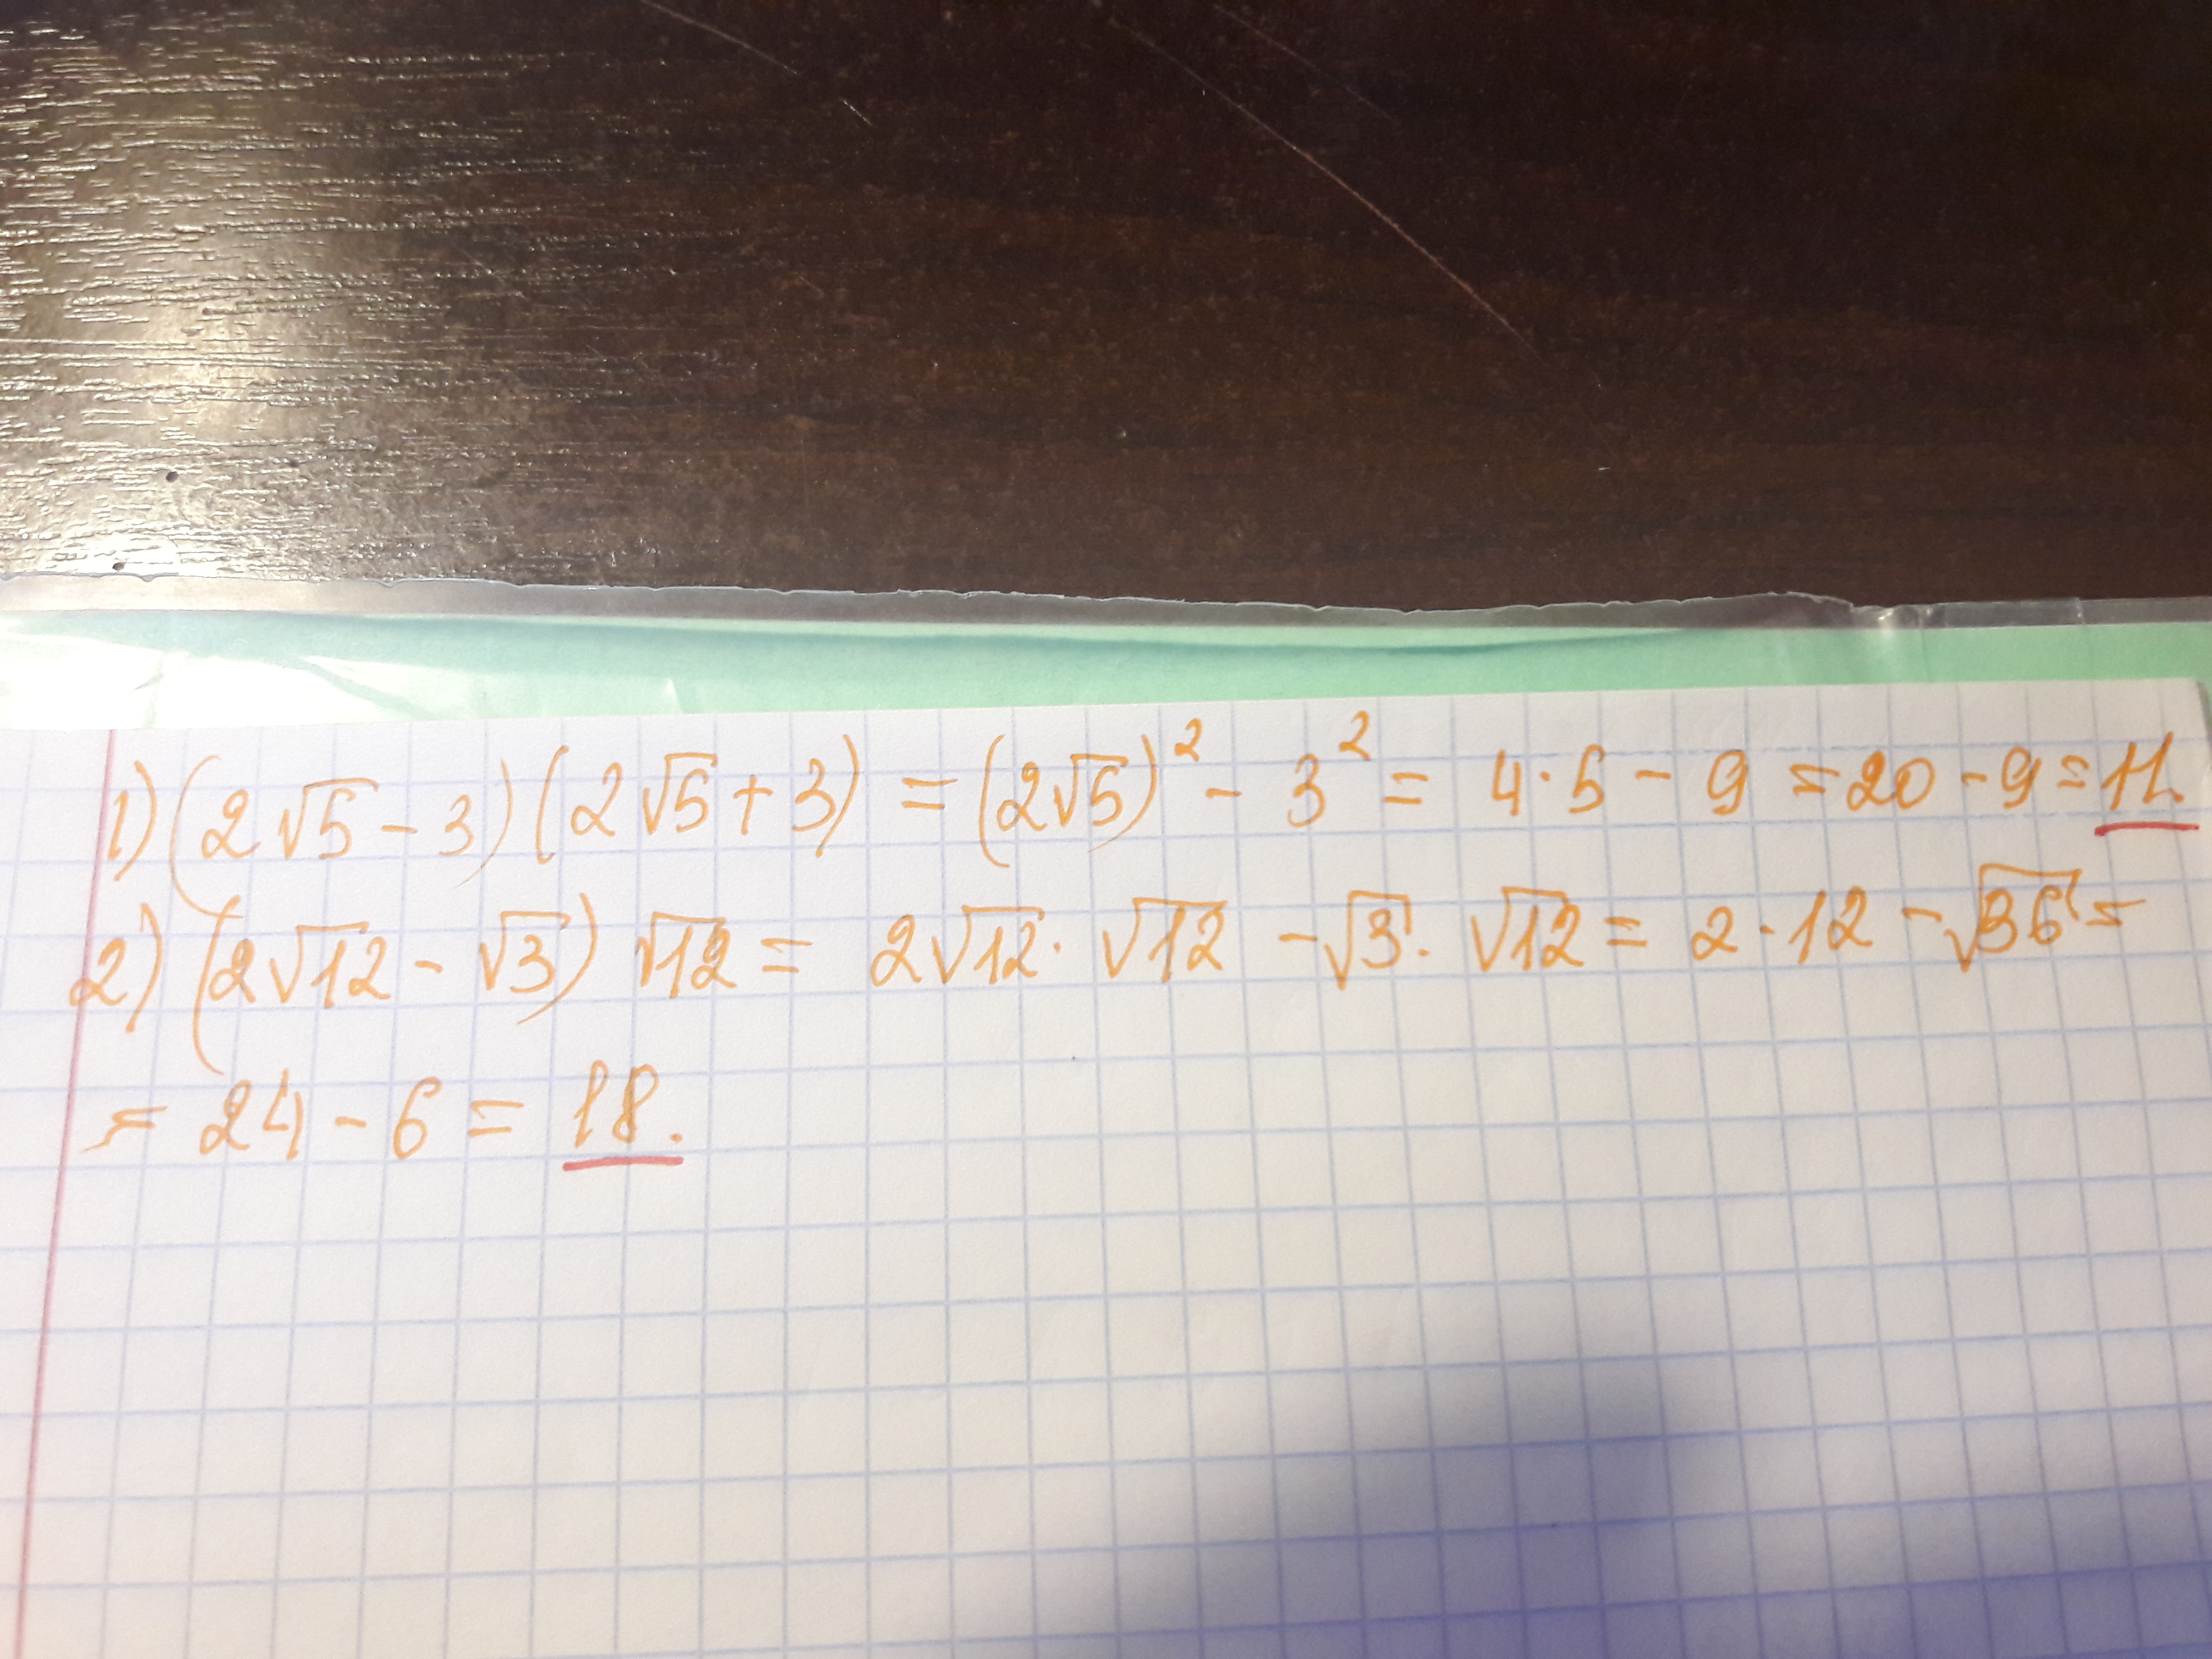 1) (2√5 - 3)(2√5 + 3) = (2√5)² - 3² = 4·5 - 9 = 20 - 9 = 11.
2) (2√12 - √3) √12 = 2√12 · √12 - √3 · √12 = 2·12 - √36 =
= 24 - 6 = 18.